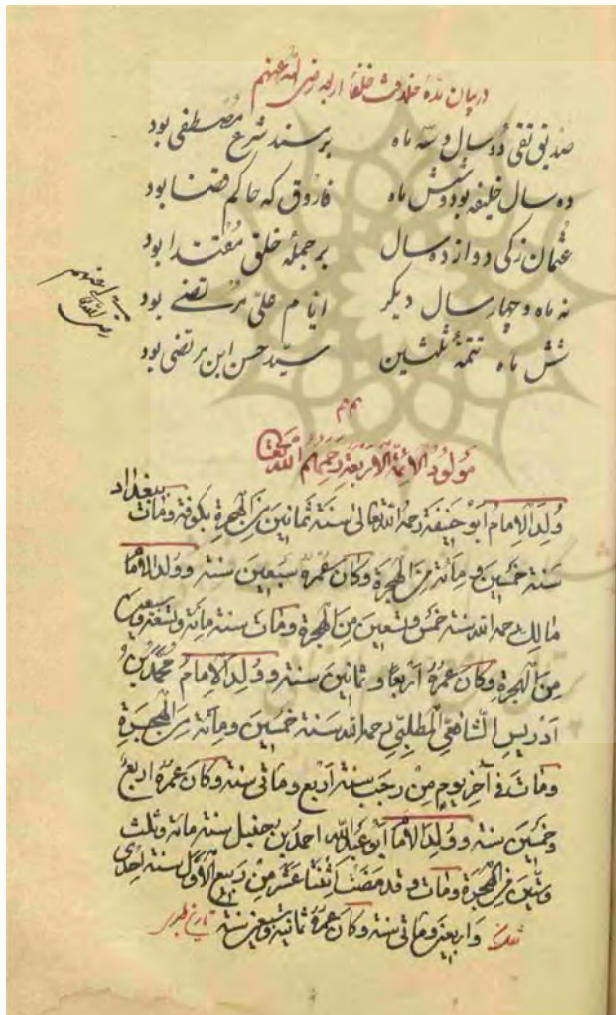 در بیان مدهٔ خلافت خلفاء اربعه رضی الله عنهم
صدیق تقی دو سال و سه ماه بر مسند شرع مصطفی بود
ده سال خلیفه بود و شش ماه فاروق که حاکم قضا بود
عثمان زکی دوازده سال بر جملهٔ خلق مقتدا بود
نه ماه و چهار سال دیگر ایام علی مرتضی بود
شش ماه تتمهٔ ثلثین سید حسن ابن مرتضی بود
رضی الله تعالی عنهم
مَولودُ الائمّة الاربعة رحمهم الله تعالی
وُلِدَ الاِمامُ ابو حنیفة رحمه الله تعالی سنة ثمانین من الهجرة بکوفة ومات ببغداد
سنة خمسین و مائة من الهجرة وکان عمره سبعین سنة ووُلد الامام
مالك رحمه الله سنة خمس وتسعین من الهجرة ومات سنة مائة وتسعة وسبعین
من الهجرة وکان عمره اربعا وثمانین سنة ووُلِدَ الاِمامُ محمد بن
ادریس الشافعی المطلبی رحمه الله سنة خمسین ومائة من الهجرة
ومات فی آخر یوم من رجب سنة اربع وماتی سنة وکان عمره اربع
وخمسین سنة وولد الامام ابو عبدالله احمد بن حنبل سنة مائة وثلث
وستین من الهجرة ومات وقد مضت اثنتا عشر من ربیع الاول سنة احدی
واربعین وماتی سنة وکان عمره ثمانیة وسبعین سنة تاریخ طبری